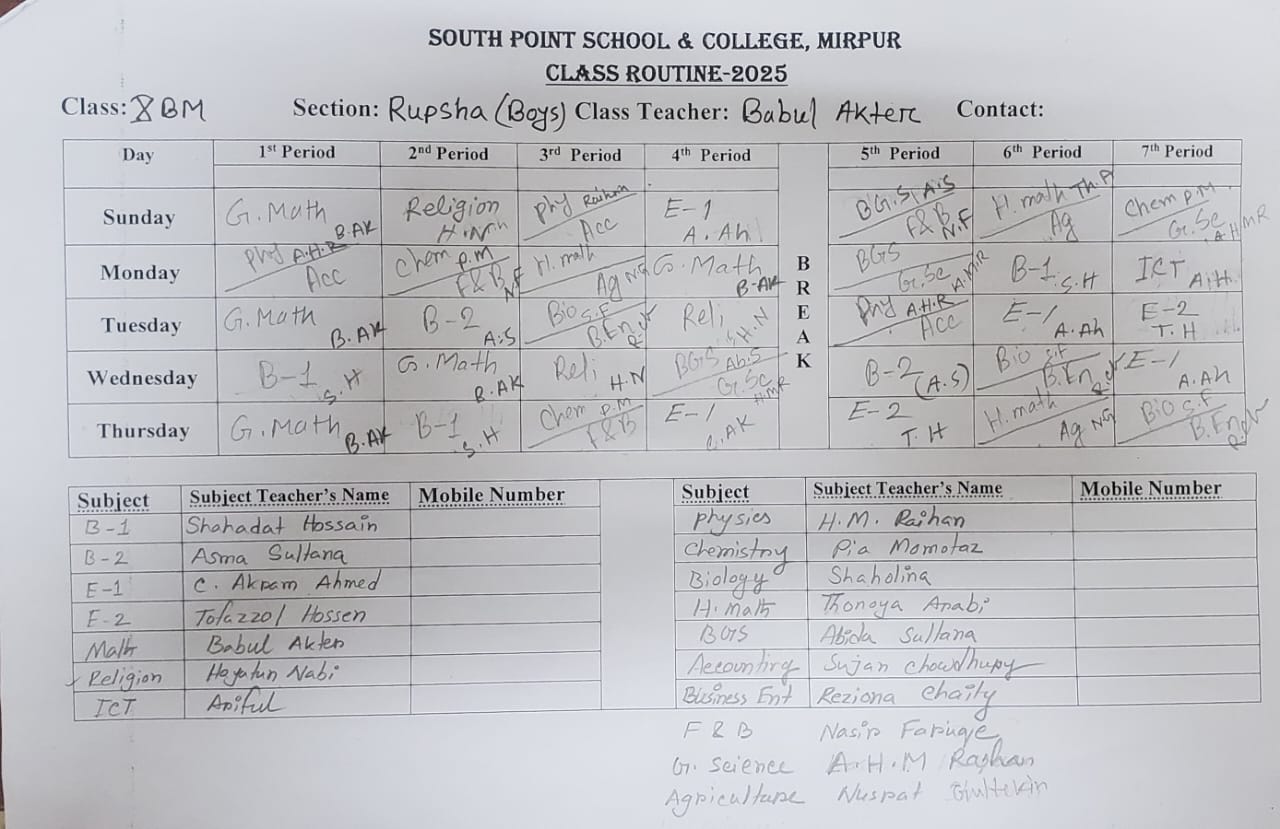 SOUTH POINT SCHOOL & COLLEGE, MIRPUR
CLASS ROUTINE-2025
Class: X BM Section: Rupsha (Boys) Class Teacher: Babul Akter Contact:
Day 1st Period 2nd Period 3rd Period 4th Period BREAK 5th Period 6th Period 7th Period
Sunday G. Math B.AK Religion H.N Phy Raihan Acc E-1 A.Ah BG.S A.S F&B N.F H.math Th.A Ag Chem P.M G.Sc A.HMR
Monday Phy A.H.R Acc Chem P.M F&B N.F H.math Ag NG G.Math B.AK BGS G.Sc A.HMR B-1 S.H ICT A.H
Tuesday G.Math B.AK B-2 A.S Bio S.F B.En Reli H.N Phy A.H.R Acc E-1 A.Ah E-2 T.H
Wednesday B-1 S.H G.Math B.AK Reli H.N BGS Ab.S G.Sc HMR B-2 (A.S) Bio S.F B.En E-1 A.Ah
Thursday G.Math B.AK B-1 S.H Chem P.M F&B E-1 C.AK E-2 T.H H.math Ag NG Bio S.F B.En
Subject Subject Teacher's Name Mobile Number Subject Subject Teacher's Name Mobile Number
B-1 Shahadat Hossain Physics H.M. Raihan
B-2 Asma Sultana Chemistry Pia Momotaz
E-1 C. Akram Ahmed Biology Shaholina
E-2 Tofazzol Hossen H.math Thonoya Arabi
Math Babul Akter BGS Abida Sultana
Religion Hayatun Nabi Accounting Sujan Chowdhury
ICT Ariful Business Ent Reziona Chaity
F & B Nasir Faruqe
G. Science A.H.M Raihan
Agriculture Nusrat Gultekin